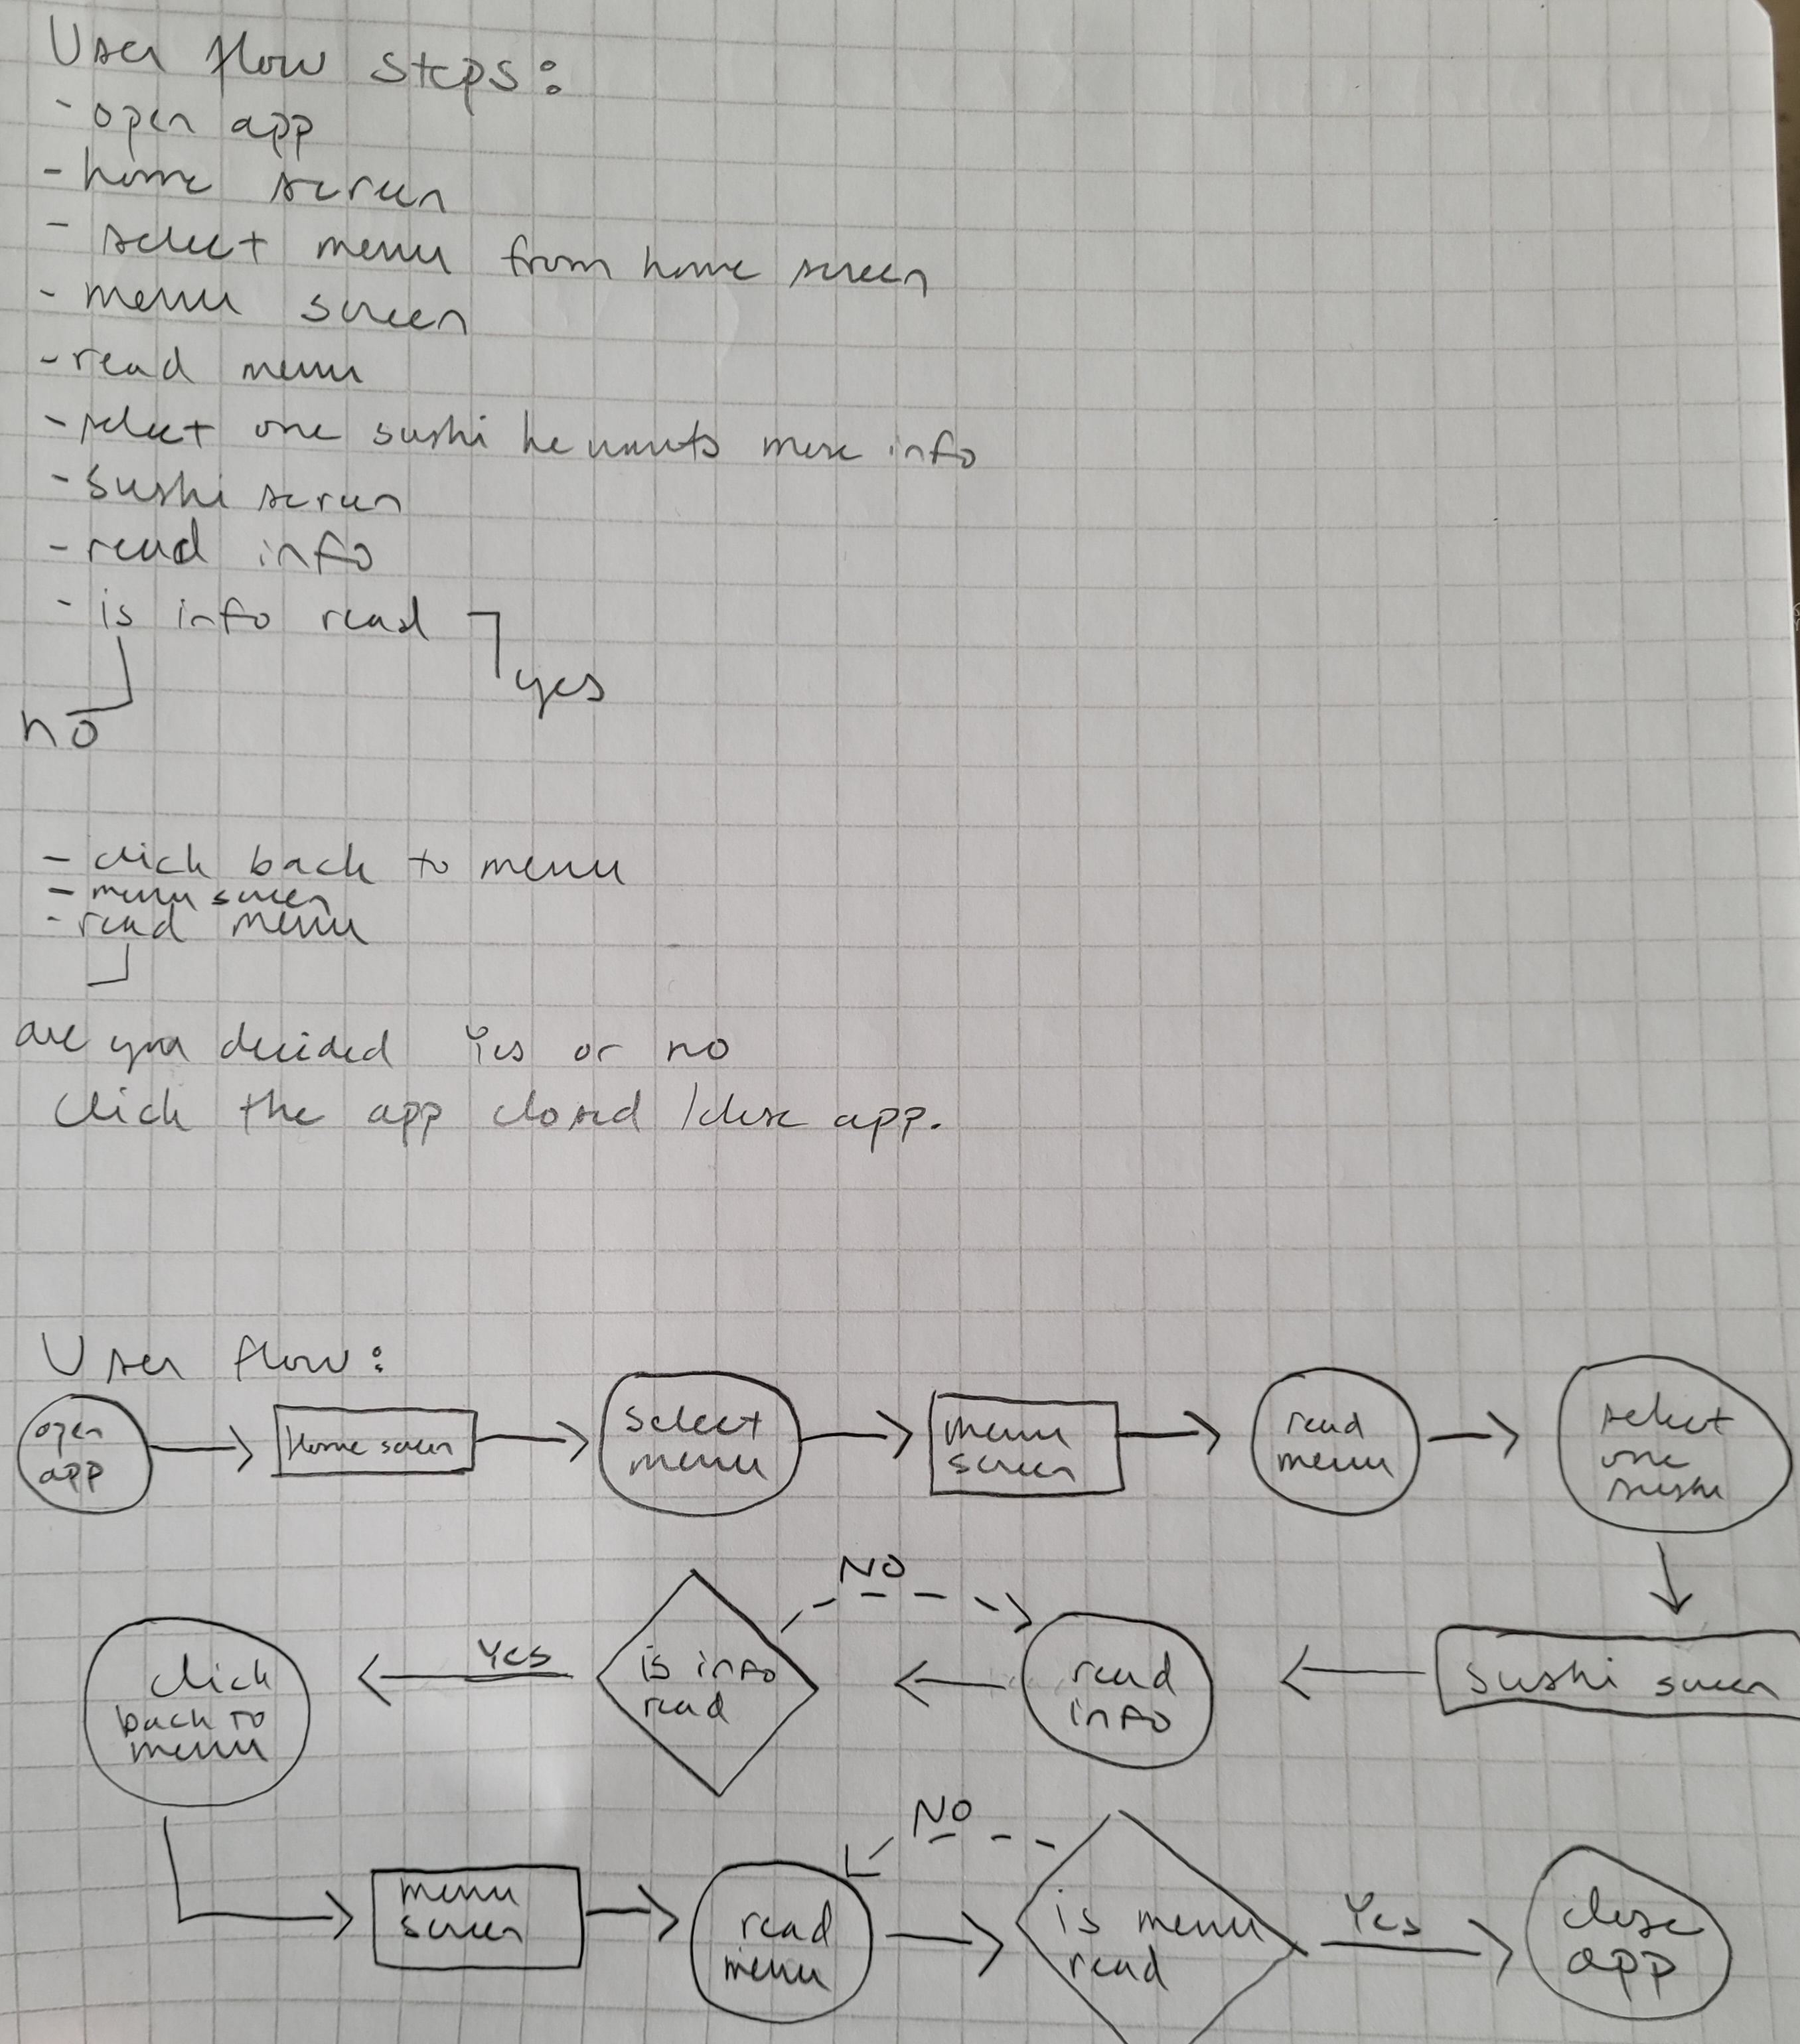 User flow steps:
- open app
- home screen
- select menu from home screen
- menu screen
- read menu
- select one sushi he wants more info
- sushi screen
- read info
- is info read
yes
no
- click back to menu
- menu screen
- read menu
are you decided Yes or no
Click the app closed / close app.
User flow:
open
app
Home screen
select
menu
menu
screen
read
menu
select
one
sushi
NO
click
back to
menu
Yes
is info
read
read
info
sushi screen
NO
menu
screen
read
menu
is menu
read
Yes
close
app